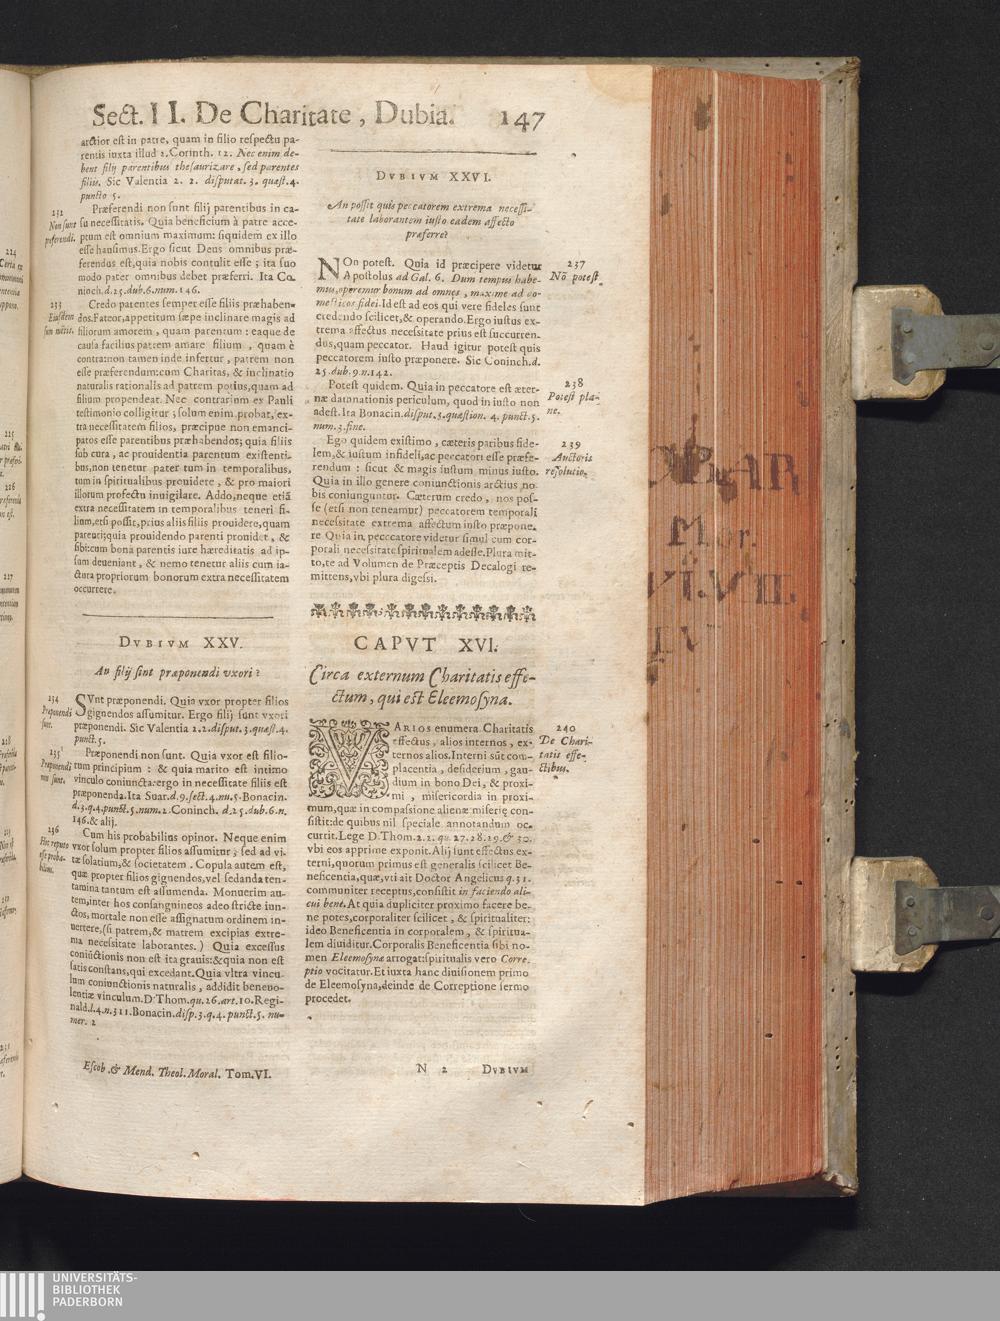 Sect. II. De Charitate, Dubia. 147
arctior est in patre, quam in filio respectu pa-
rentis iuxta illud 2. Corinth. 12. Nec enim de-
bent filij parentibus thesaurizare, sed parentes
filiis. Sic Valentia 2. 2. disputat. 3. quæst. 4.
puncto 5.
232
Non sunt
præferendi.
Præferendi non sunt filij parentibus in ca-
su necessitatis. Quia beneficium à patre acce-
ptum est omnium maximum: siquidem ex illo
esse hausimus. Ergo sicut Deus omnibus præ-
ferendus est, quia nobis contulit esse; ita suo
modo pater omnibus debet præferri. Ita Co-
ninch. d. 25. dub. 6. num. 146.
233
Eiusdem
sum
Credo parentes semper esse filiis præhaben-
dos. Fateor, appetitum sæpe inclinare magis ad
filiorum amorem, quam parentum: eaque de
causa facilius patrem amare filium, quam è
contra: non tamen inde infertur, patrem non
esse præferendum: cum Charitas, & inclinatio
naturalis rationalis ad patrem potius, quam ad
filium propendeat. Nec contrarium ex Pauli
testimonio colligitur; solum enim probat, ex-
tra necessitatem filios, præcipue non emanci-
patos esse parentibus præhabendos; quia filiis
sub cura, ac prouidentia parentum existenti-
bus, non tenetur pater tum in temporalibus,
tum in spiritualibus prouidere, & pro maiori
illorum profectu inuigilare. Addo, neque etiã
extra necessitatem in temporalibus teneri fi-
lium, etsi possit, prius aliis filiis prouidere, quam
parenti; quia prouidendo parenti prouidet, &
sibi: cum bona parentis iure hæreditatis ad ip-
sum deueniant, & nemo tenetur aliis cum ia-
ctura propriorum bonorum extra necessitatem
occurrere.
DVBIVM XXV.
An filij sint præponendi vxori?
234
Præponendi
sunt.
SVnt præponendi. Quia vxor propter filios
gignendos assumitur. Ergo filij sunt vxori
præponendi. Sic Valentia 2. 2. disput. 3. quæst. 4.
punct. 5.
235
Præponendi
non sunt.
Præponendi non sunt. Quia vxor est filio-
rum principium: & quia marito est intimo
vinculo coniuncta: ergo in necessitate filiis est
præponenda. Ita Suar. d. 9. sect. 4. nu. 5. Bonacin.
d. 3. q. 4. punct. 5. num. 2. Coninch. d. 25. dub. 6. n.
146. & alij.
236
Hoc reputo
esse proba-
bilius.
Cum his probabilius opinor. Neque enim
vxor solum propter filios assumitur; sed ad vi-
tæ solatium, & societatem. Copula autem est,
quæ propter filios gignendos, vel sedanda ten-
tamina tantum est assumenda. Monuerim au-
tem, inter hos consanguineos adeo stricte iun-
ctos, mortale non esse assignatum ordinem in-
uertere, (si patrem, & matrem excipias extre-
ma necessitate laborantes.) Quia excessus
coniũctionis non est ita grauis: & quia non est
satis constans, qui excedant. Quia vltra vincu-
lum coniunctionis naturalis, addidit beneuo-
lentiæ vinculum. D. Thom. qu. 26. art. 10. Regi-
nald. l. 4. n. 311. Bonacin. disp. 3. q. 4. punct. 5. nu-
mer. 2
DVBIVM XXVI.
An possit quis peccatorem extrema necessi-
tate laborantem iusto eadem affecto
præferre?
237
Nõ potest.
NOn potest. Quia id præcipere videtur
Apostolus ad Gal. 6. Dum tempus habe-
mus, operemur bonum ad omnes, maxime ad do-
mesticos fidei. Id est ad eos qui vere fideles sunt
credendo scilicet, & operando. Ergo iustus ex-
trema affectus necessitate prius est succurren-
dus, quam peccator. Haud igitur potest quis
peccatorem iusto præponere. Sic Coninch. d.
25. dub. 9. n. 142.
238
Potest pla-
ne.
Potest quidem. Quia in peccatore est æter-
næ damnationis periculum, quod in iusto non
adest. Ita Bonacin. disput. 3. quæstion. 4. punct. 5.
num. 3. fine.
239
Auctoris
resolutio.
Ego quidem existimo, cæteris paribus fide-
lem, & iustum infideli, ac peccatori esse præfe-
rendum: sicut & magis iustum minus iusto.
Quia in illo genere coniunctionis arctius no-
bis coniunguntur. Cæterum credo, nos pos-
se (etsi non teneamur) peccatorem temporali
necessitate extrema affectum iusto præpone-
re Quia in peccatore videtur simul cum cor-
porali necessitate spiritualem adesse. Plura mit-
to, te ad Volumen de Præceptis Decalogi re-
mittens, vbi plura digessi.
CAPVT XVI.
Circa externum Charitatis effe-
ctum, qui est Eleemosyna.
240
De Chari-
tatis effe-
ctibus.
VARIOS enumera Charitatis
effectus, alios internos, ex-
ternos alios. Interni sũt com-
placentia, desiderium, gau-
dium in bono Dei, & proxi-
mi, misericordia in proxi-
mum, quæ in compassione alienæ miserię con-
sistit: de quibus nil speciale annotandum oc-
currit. Lege D. Thom. 2. 2. qu. 27. 28. 29. & 30.
vbi eos apprime exponit. Alij sunt effectus ex-
terni, quorum primus est generalis scilicet Be-
neficentia, quæ, vti ait Doctor Angelicus q. 31.
communiter receptus, consistit in faciendo ali-
cui bene. At quia dupliciter proximo facere be-
ne potes, corporaliter scilicet, & spiritualiter:
ideo Beneficentia in corporalem, & spiritua-
lem diuiditur. Corporalis Beneficentia sibi no-
men Eleemosynæ arrogat: spiritualis vero Corre-
ptio vocitatur. Et iuxta hanc diuisionem primo
de Eleemosyna, deinde de Correptione sermo
procedet.
Escob. & Mend. Theol. Moral. Tom. VI.
N 2 DVBIVM
Mor.
VI. VII.
UNIVERSITÄTS-
BIBLIOTHEK
PADERBORN